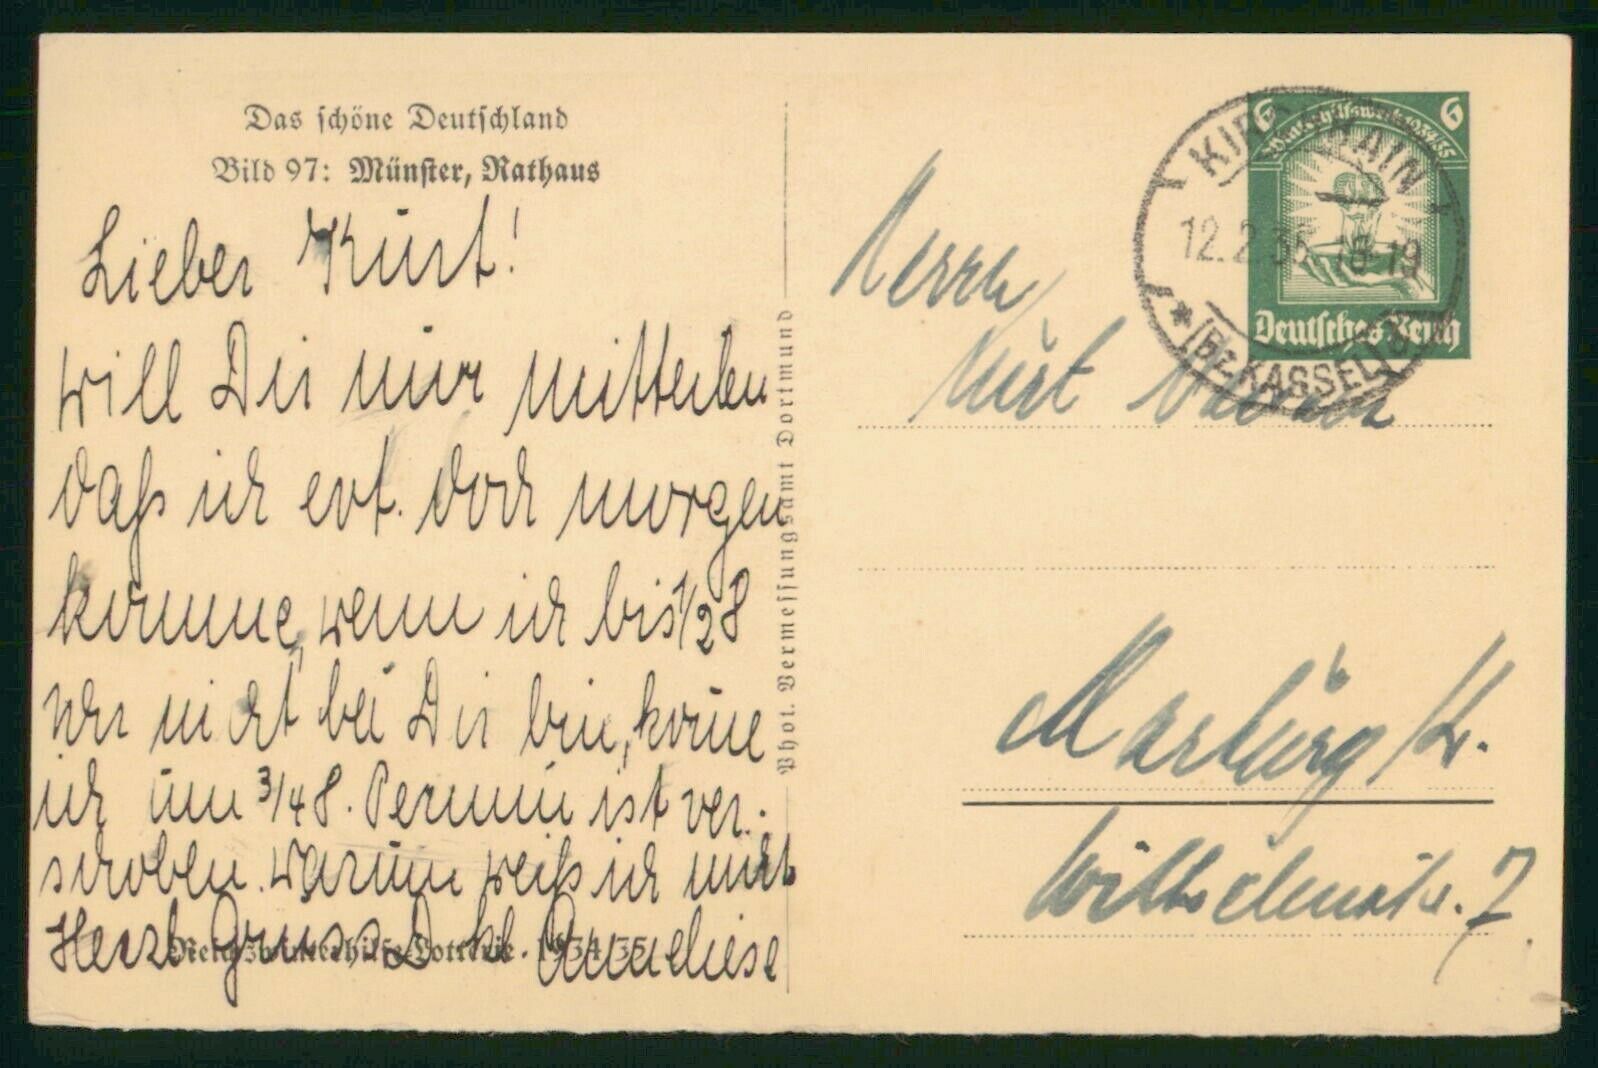 Das schöne Deutschland
Bild 97: Münster, Rathaus
Lieber Kurt!
will Dir nur mitteilen
daß ich evt. doch morgen
komme, wenn ich bis 1/2 8
Uhr nicht bei Dir bin, kom̄e
ich um 3/4 8. Termin ist ver-
schoben. Warum weiß ich nicht
Herzl Gruss D Anneliese
Reichswinterhilfe-Lotterie · 1934/35
Phot. Vermessungsamt Dortmund
6 6
Winterhilfswerk 1934/35
Deutsches Reich
KIRCHHAIN
12.2.35 18-19
* (Bz. KASSEL)
Herrn
Kurt
Marburg/L.
Wilhelmstr. 7